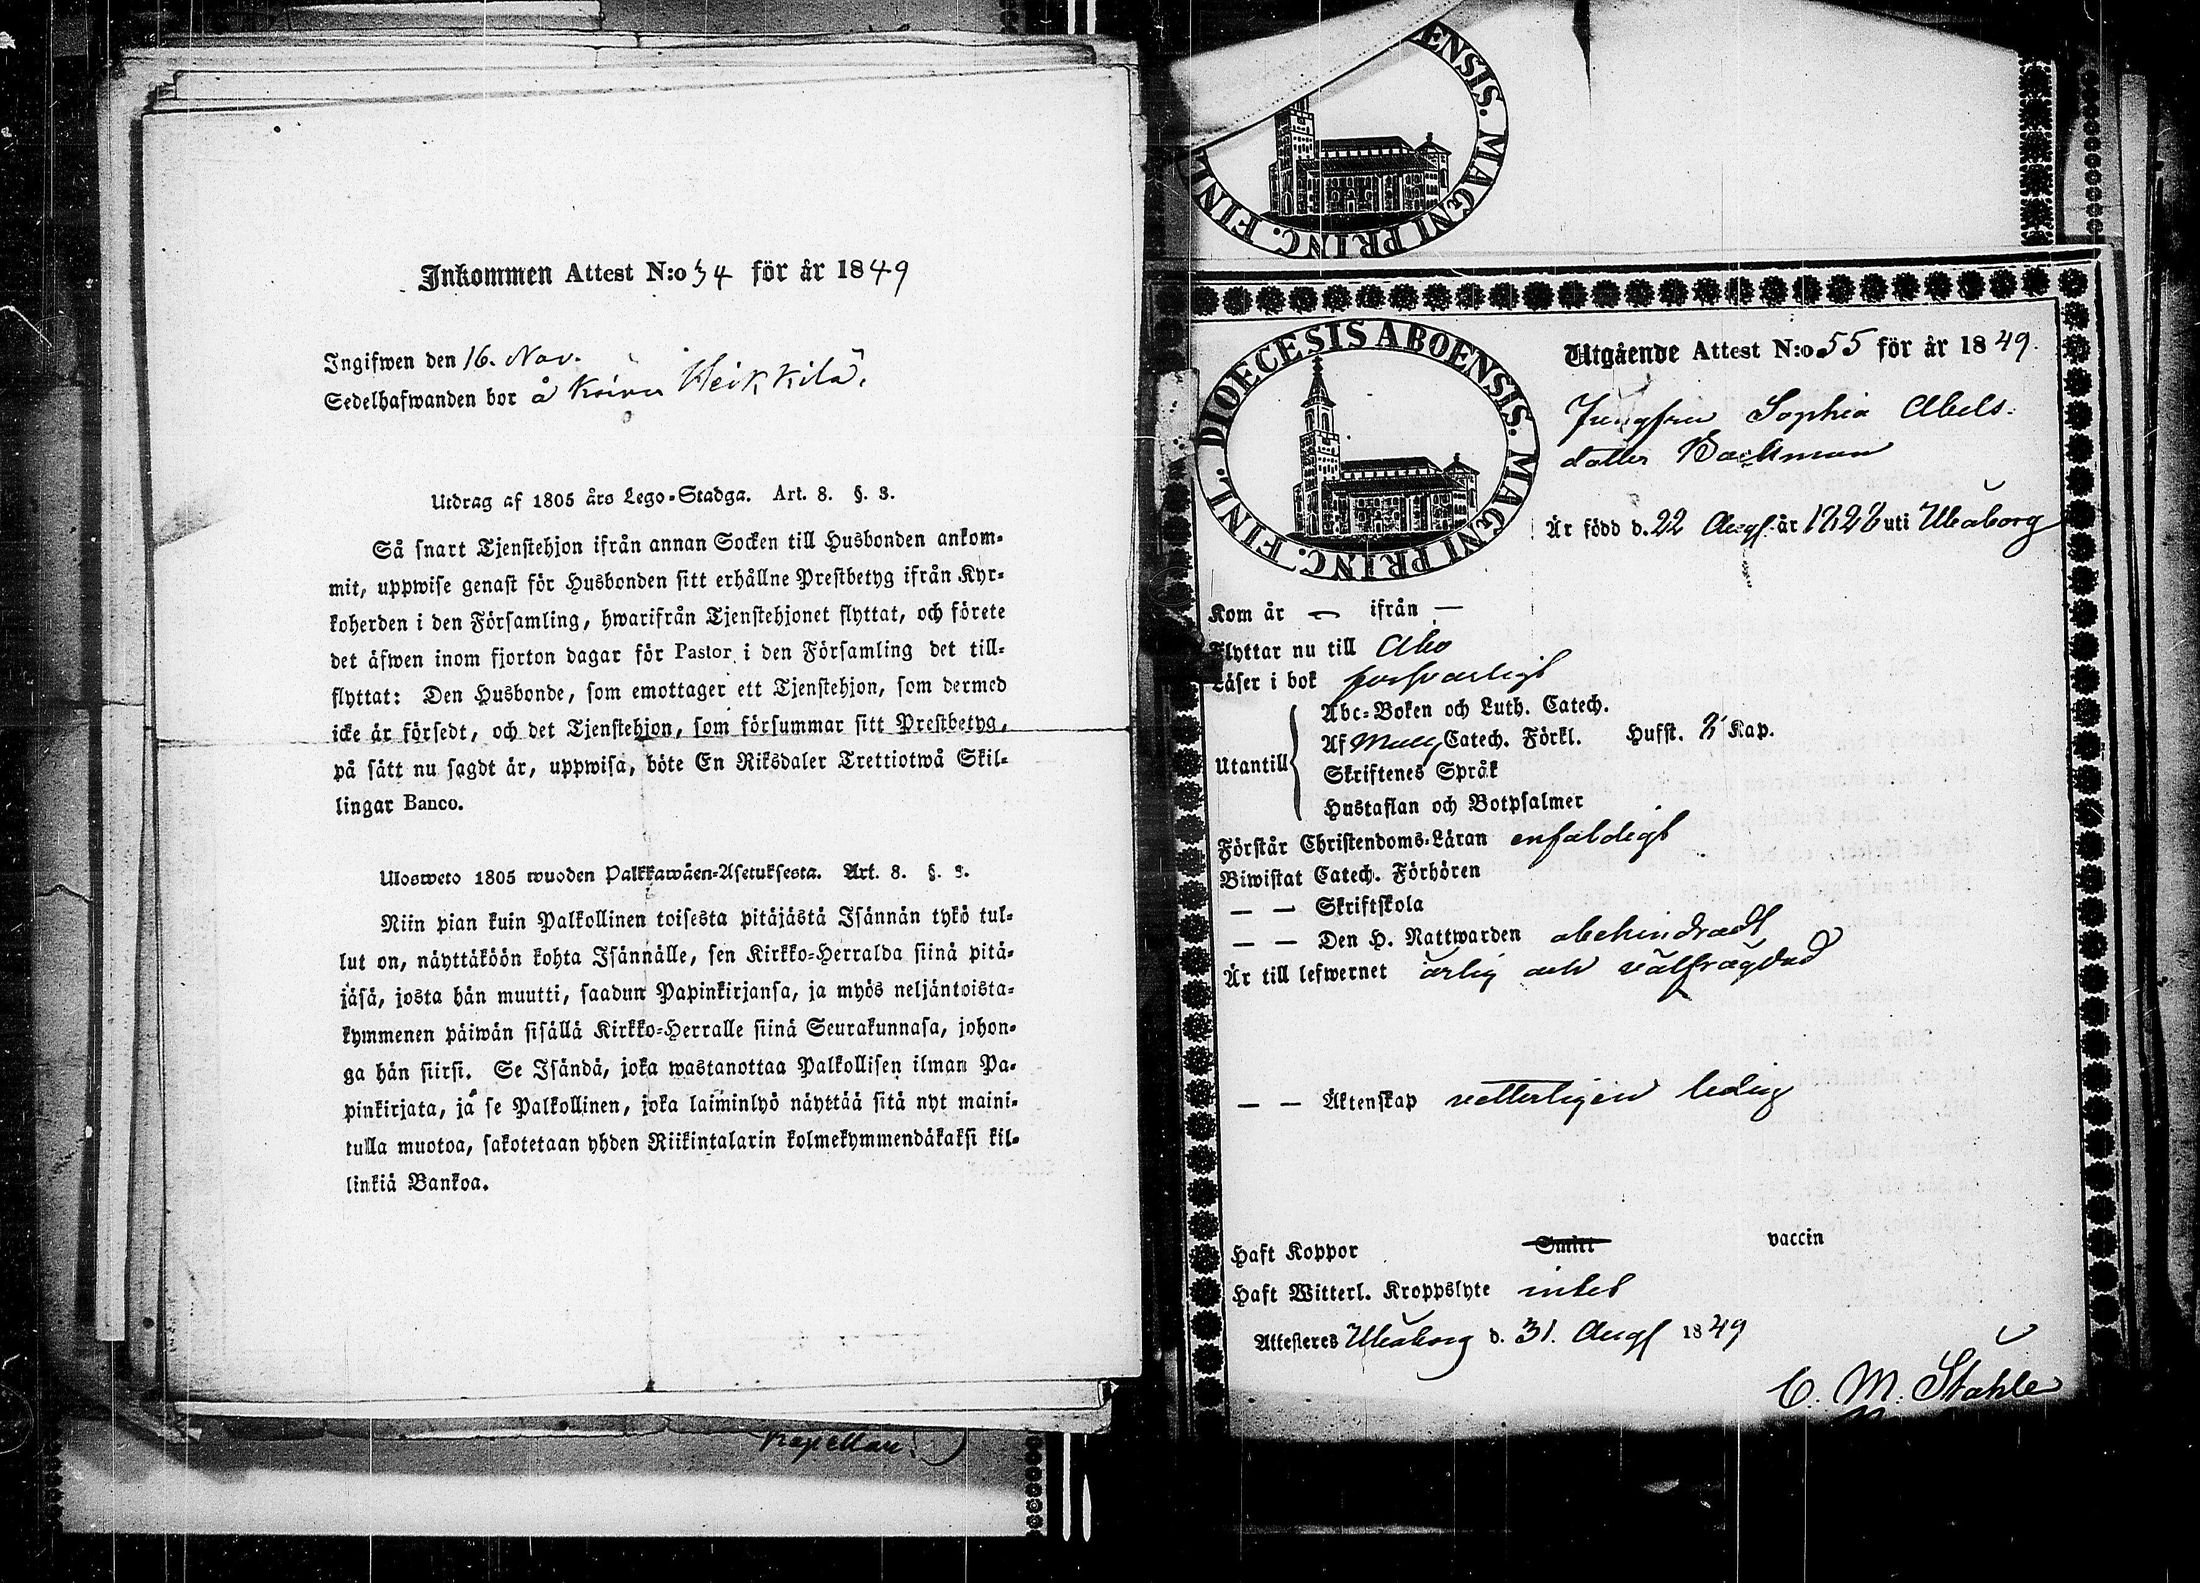 Inkommen Attest N:o 34 för år 1849
Ingifwen den 16. Nov.
Sedelhafwanden bor å Heikkilä.
Utdrag af 1805 års Lego-Stadga. Art. 8. §. 3.
Så snart Tjenstehjon ifrån annan Socken till Husbonden ankom-
mit, uppwise genast för Husbonden sitt erhållne Prestbetyg ifrån Kyr-
koherden i den Församling, hwarifrån Tjenstehjonet flyttat, och förete
det äfwen inom fjorton dagar för Pastor i den Församling det till-
flyttat: Den Husbonde, som emottager ett Tjenstehjon, som dermed
icke är försedt, och det Tjenstehjon, som försummar sitt Prestbetyg,
på sätt nu sagdt är, uppwisa, böte En Riksdaler Trettiotwå Skil-
lingar Banco.
Ulosweto 1805 wuoden Palkkawäen-Asetuksesta. Art. 8. §. 3.
Niin pian kuin Palkollinen toisesta pitäjästä Isännän tykö tul-
lut on, näyttäköön kohta Isännälle, sen Kirkko-Herralda siinä pitä-
jäsä, josta hän muutti, saadun Papinkirjansa, ja myös neljäntoista-
kymmenen päiwän sisällä Kirkko-Herralle siinä Seurakunnasa, johon-
ga hän siirsi. Se Isändä, joka wastanottaa Palkollisen ilman Pa-
pinkirjata, ja se Palkollinen, joka laiminlyö näyttää sitä nyt maini-
tulla muotoa, sakotetaan yhden Riikintalarin kolmekymmendäkaksi kil-
linkiä Bankoa.
Kapellan.
ENSIS. MAGNI PRINC. FINL.
DIOECESIS ABOENSIS. MAGNI PRINC. FINL.
Utgående Attest N:o 55 för år 1849.
Jungfru Sophia Abels-
dotter Backman
Är född d. 22 Aug. år 1828 uti Uleåborg
Kom år — ifrån —
Flyttar nu till Åbo
Läser i bok försvarligt
Utantill
Abc-Boken och Luth. Catech.
Af Catech. Förkl. Husst. 8 Kap.
Skriftenes Språk
Hustaflan och Botpsalmer
Förstår Christendoms-Läran enfaldigt
Biwistat Catech. Förhören
— — Skriftskola
— — Den H. Nattwarden obehindradt
Är till lefwernet ärlig och välfrägdad
— — Äktenskap vetterligen ledig
Haft Koppor Smitt vaccin
Haft Witterl. Kroppslyte intet
Attesteres Uleåborg d. 31. Aug 1849
C. M. Ståhle